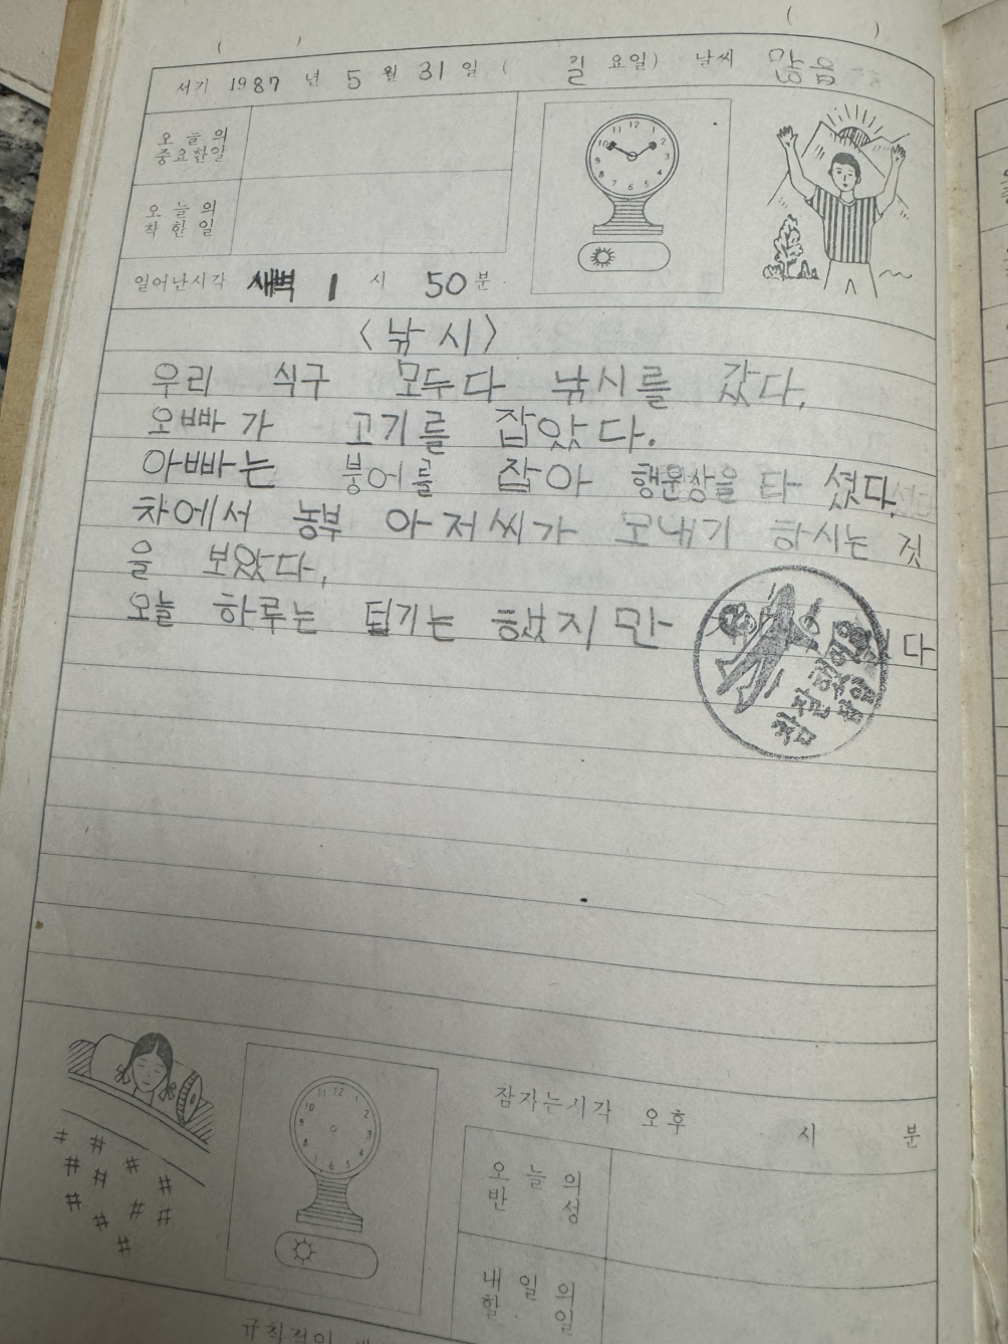 서기 1987 년 5 월 31 일 ( 일 요일) 날씨 맑음
오늘의
중요한일
오늘의
착한일
일어난시각 새벽 1 시 50 분
<낚시>
우리 식구 모두다 낚시를 갔다.
오빠가 고기를 잡았다.
아빠는 붕어를 잡아 행운상을 타 셨다.
차에서 농부 아저씨가 모내기 하시는 것
을 보았다.
오늘 하루는 덥기는 했지만 다
참 잘했어요
잠자는시각 오후 시 분
오늘의
반성
내일의
할일
규칙적인